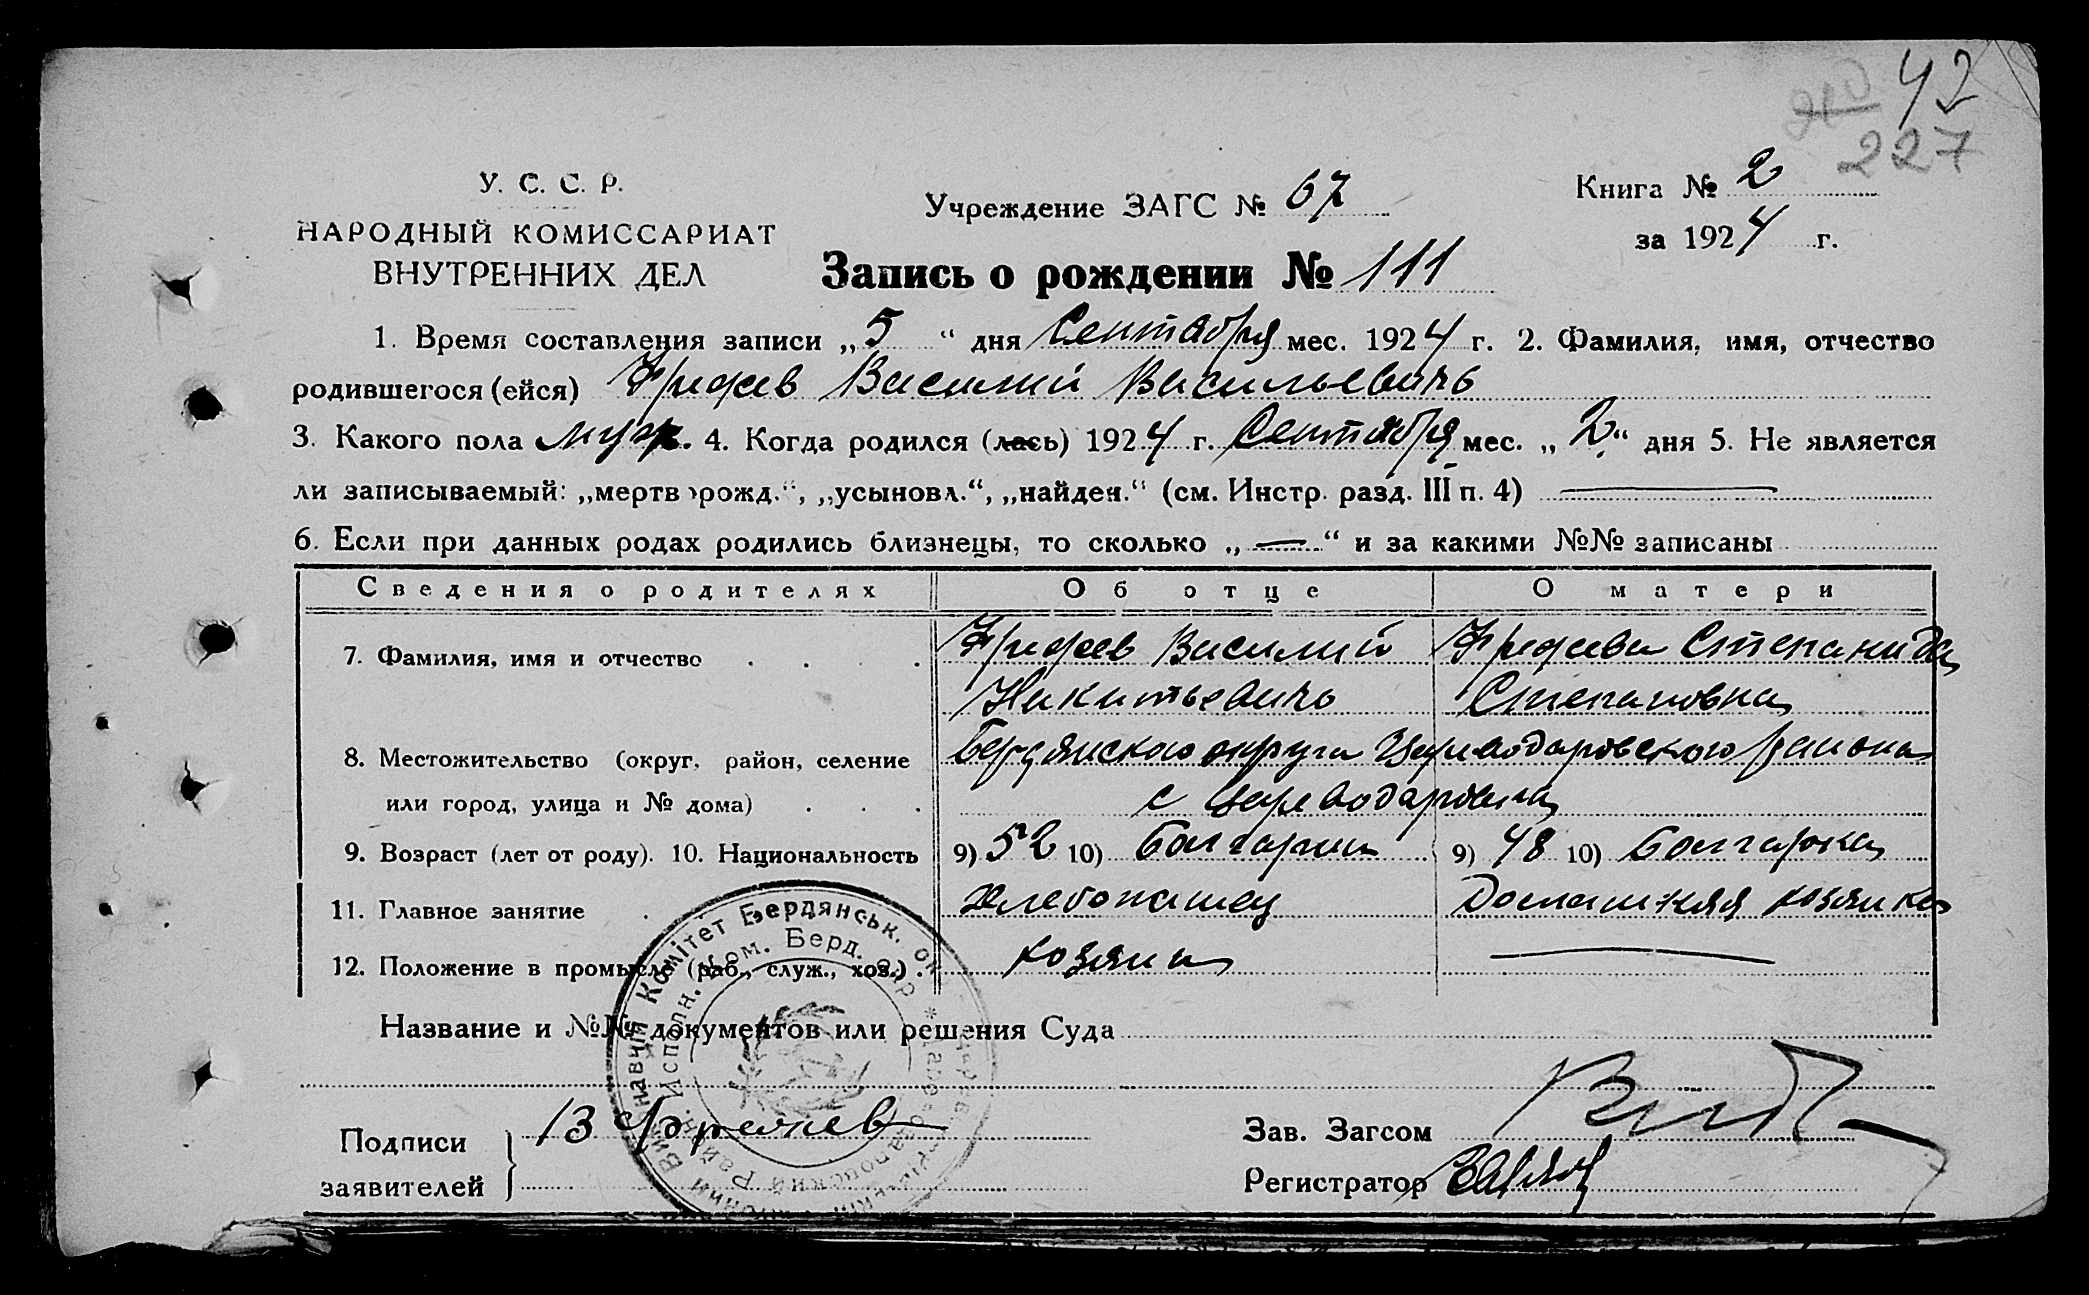 42
227
У. С. С. Р.
НАРОДНЫЙ КОМИССАРИАТ
ВНУТРЕННИХ ДЕЛ
Учреждение ЗАГС № 67
Книга № 2
за 1924 г.
Запись о рождении № 111
1. Время составления записи „5“ дня Сентября мес. 1924 г. 2. Фамилия, имя, отчество
родившегося (ейся) Василий Васильевичъ
3. Какого пола муж. 4. Когда родился (лась) 1924 г. Сентября мес. „2“ дня 5. Не является
ли записываемый: „мертворожд.“, „усыновл.“, „найден.“ (см. Инстр. разд. III п. 4) —
6. Если при данных родах родились близнецы, то сколько „—“ и за какими №№ записаны
Сведения о родителях Об отце О матери
7. Фамилия, имя и отчество Василий Степанида
Никитьевичъ Степановна
8. Местожительство (округ, район, селение Бердянского округа Цареводаровского района
или город, улица и № дома) с Цареводаровка
9. Возраст (лет от роду). 10. Национальность 9) 52 10) Болгарин 9) 48 10) Болгарка
11. Главное занятие хлебопашец Домашняя хозяйка
12. Положение в промысле (раб., служ., хоз.) хозяин —
Название и №№ документов или решения Суда
Подписи
заявителей
В
Зав. Загсом
Регистратор
Виконавчий Комітет Бердянськ. ок
Исполн. Ком. Берд. окр